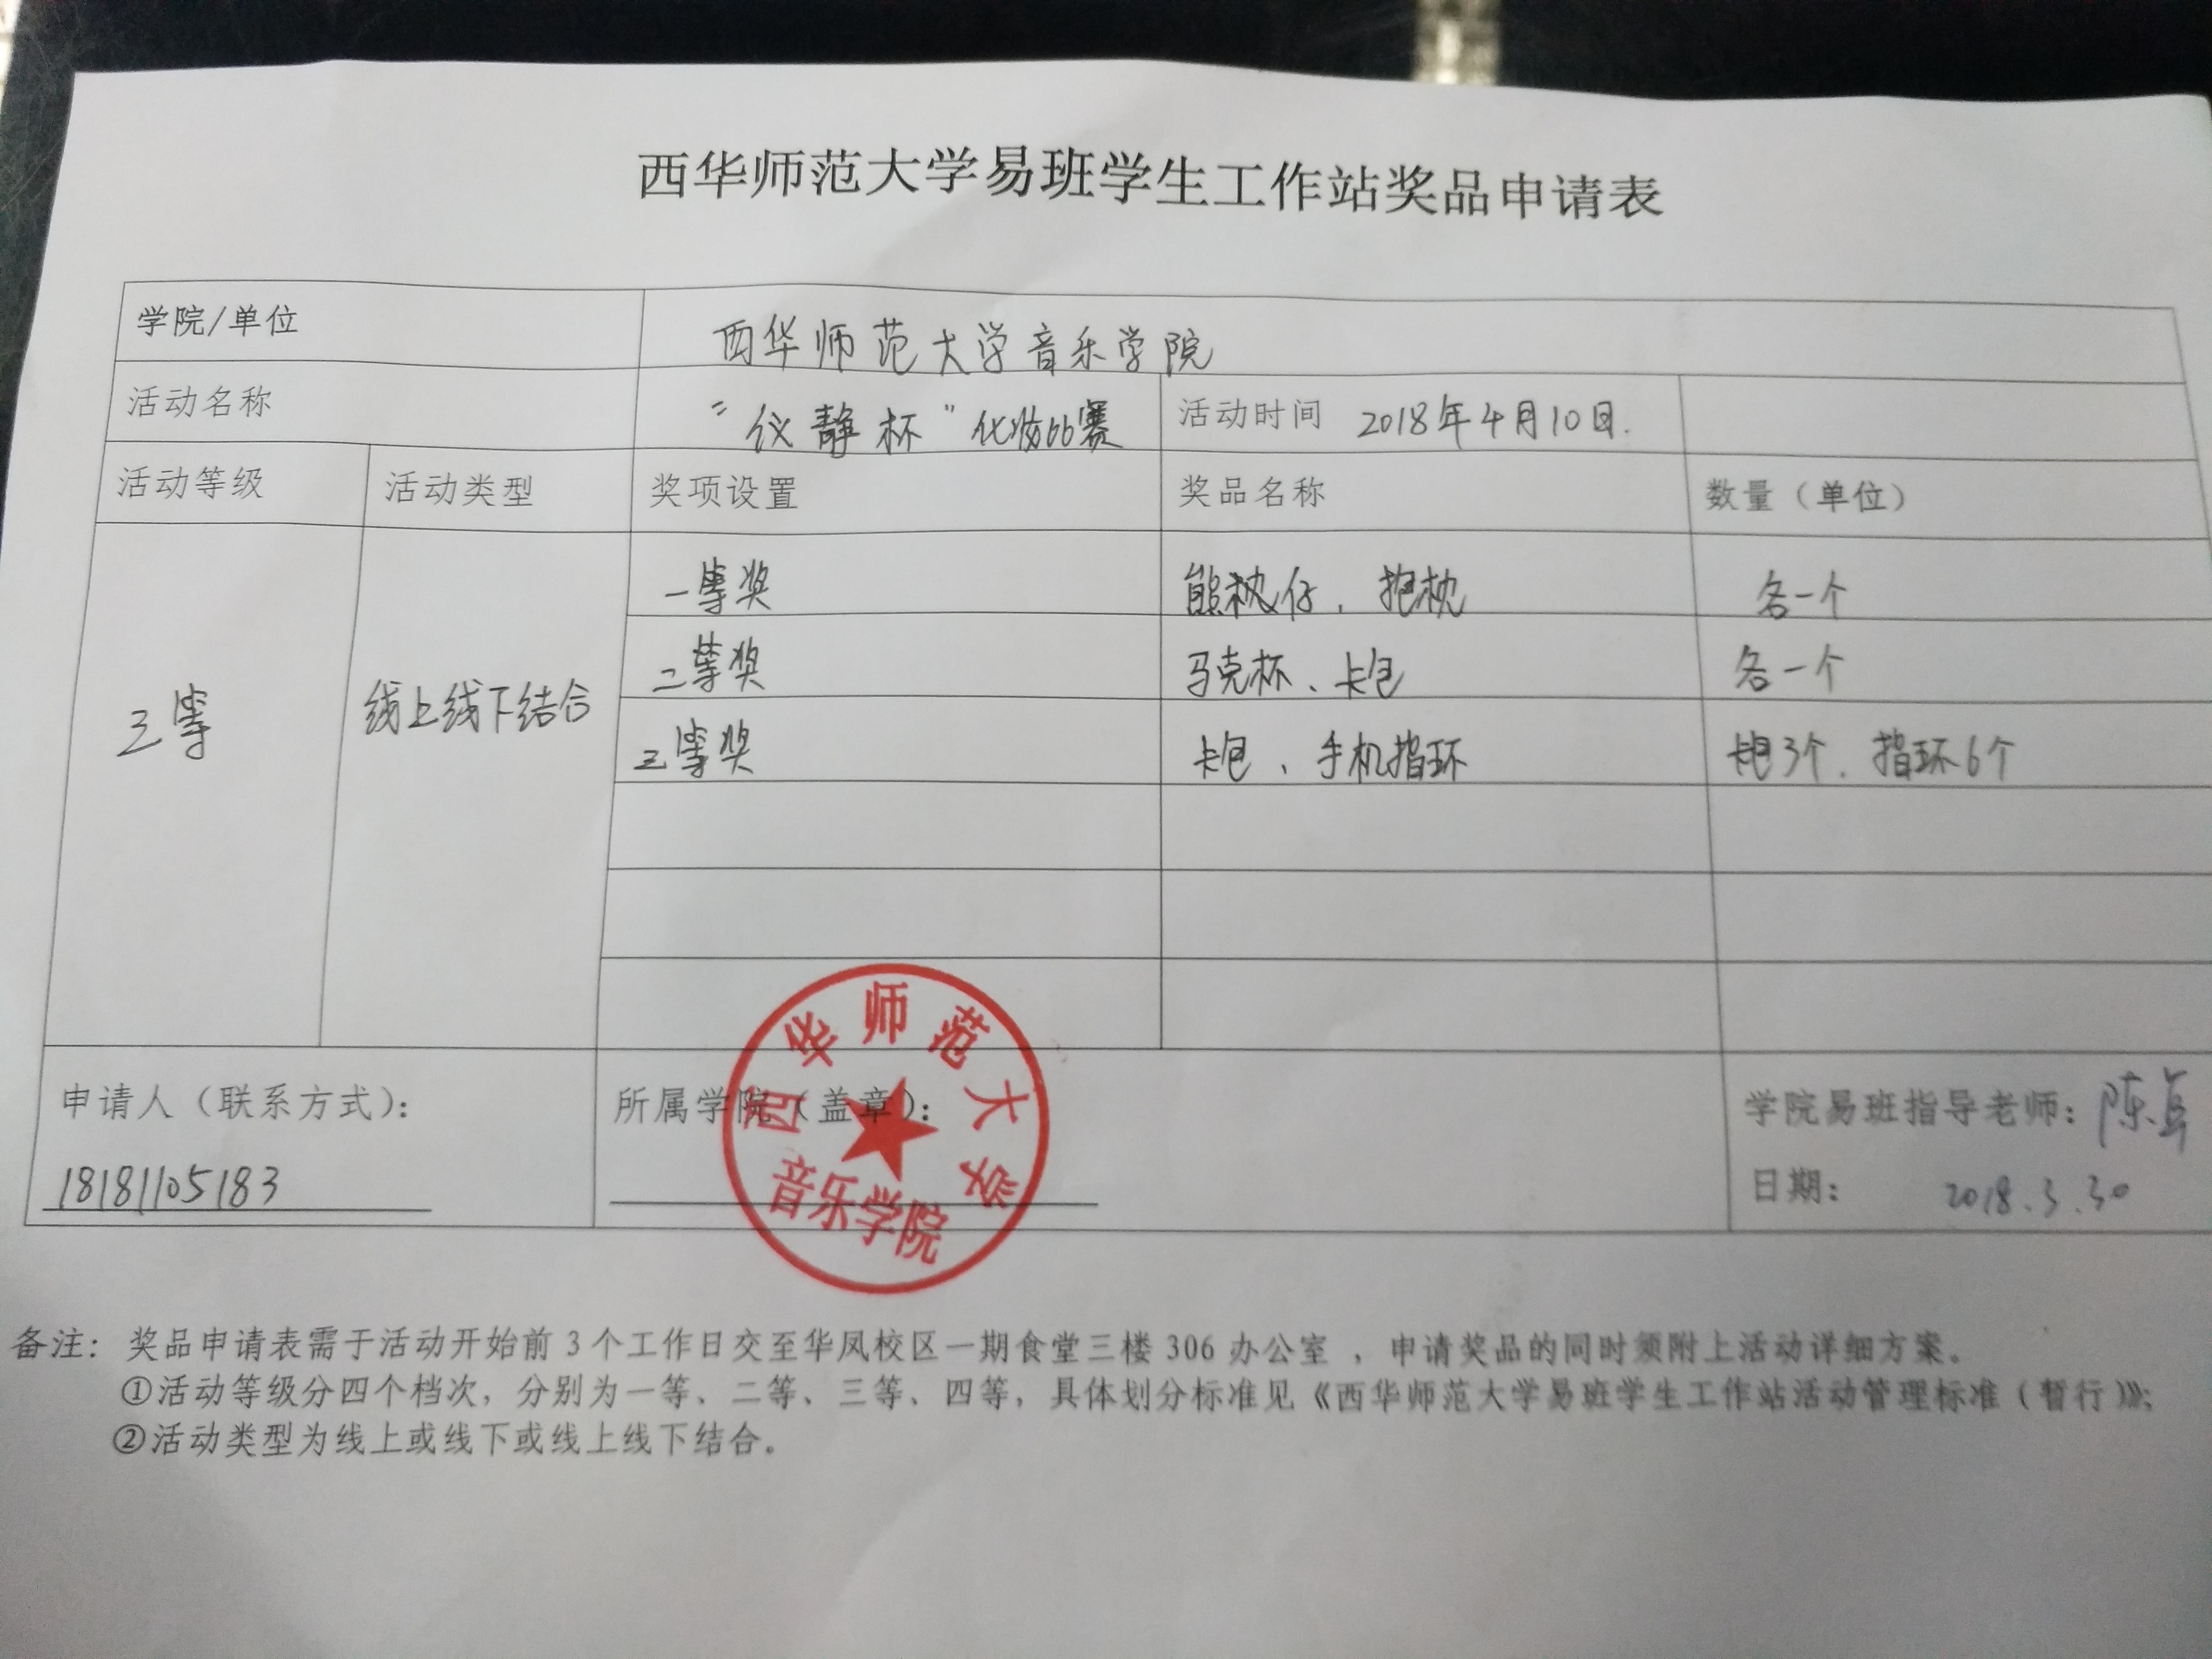 西华师范大学易班学生工作站奖品申请表
学院/单位 西华师范大学音乐学院
活动名称 “仪静杯”化妆比赛 活动时间 2018年4月10日.
活动等级 活动类型 奖项设置 奖品名称 数量（单位）
一等奖 熊 仔、抱枕 各一个
二等奖 马克杯、卡包 各一个
三等 线上线下结合
三等奖 卡包、手机指环 卡包3个、指环6个
西华师范大学
音乐学院
申请人（联系方式）： 所属学院（盖章）： 学院易班指导老师：陈
18181105183 日期： 2018.3.30
备注： 奖品申请表需于活动开始前 3 个工作日交至华凤校区一期食堂三楼 306 办公室 ，申请奖品的同时须附上活动详细方案。
①活动等级分四个档次，分别为一等、二等、三等、四等，具体划分标准见《西华师范大学易班学生工作站活动管理标准（暂行）》；
②活动类型为线上或线下或线上线下结合。